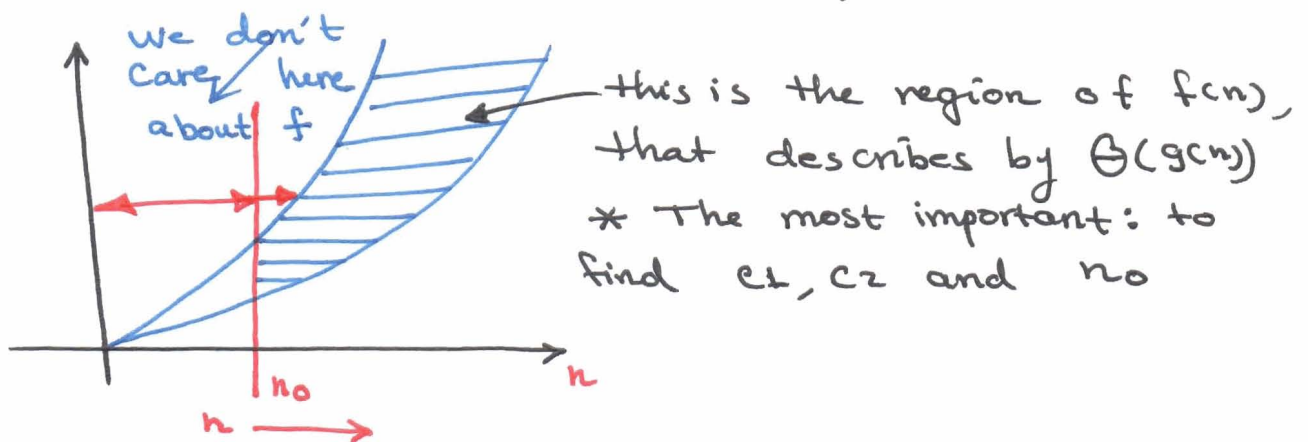 we don't
care here
about f
this is the region of f(n),
that describes by Θ(g(n))
* The most important: to
find c1, c2 and n0
n0
n
n